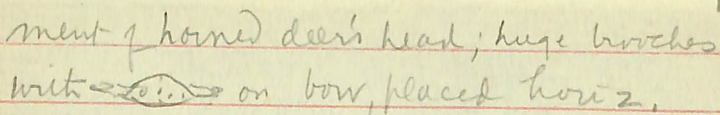 ment of horned deer's head; huge brooches
with on bow, placed horiz.